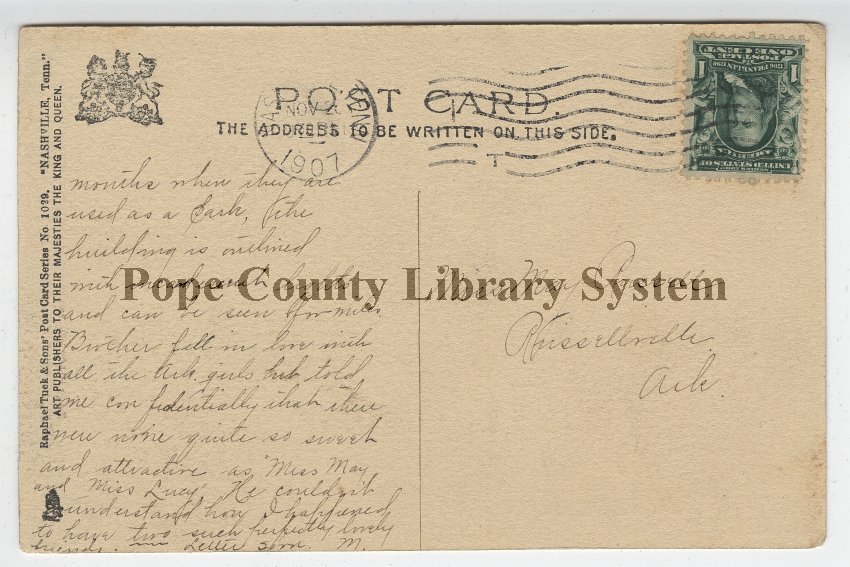 POST CARD.
THE ADDRESS TO BE WRITTEN ON THIS SIDE.
NOV
1907
T
Raphael Tuck & Sons' Post Card Series No. 1029. "NASHVILLE, Tenn."
ART PUBLISHERS TO THEIR MAJESTIES THE KING AND QUEEN.
ONE CENT
POSTAGE
1 1
UNITED STATES OF
AMERICA
months when they are
used as a Park, the
building is outlined
with lights
and can be seen for miles.
Brother fell in love with
all the Ark. girls but told
me confidentially that there
were none quite so sweet
and attractive as "Miss May
and Miss Lucy" He couldn't
understand how I happened
to have two such perfectly lovely
friends. Letter soon. M.
Miss May
Russellville
Ark.
Pope County Library System